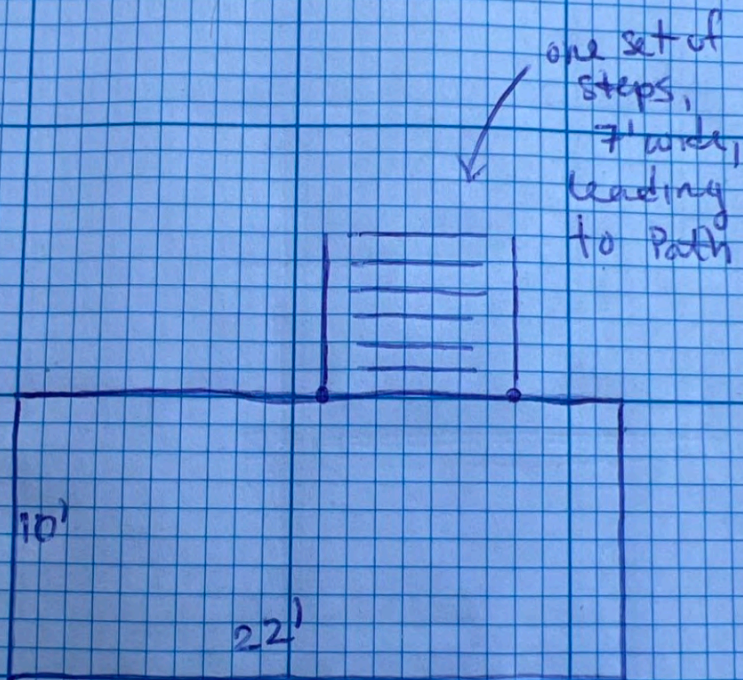 one set of
steps,
7' wide,
leading
to Path
10'
22'